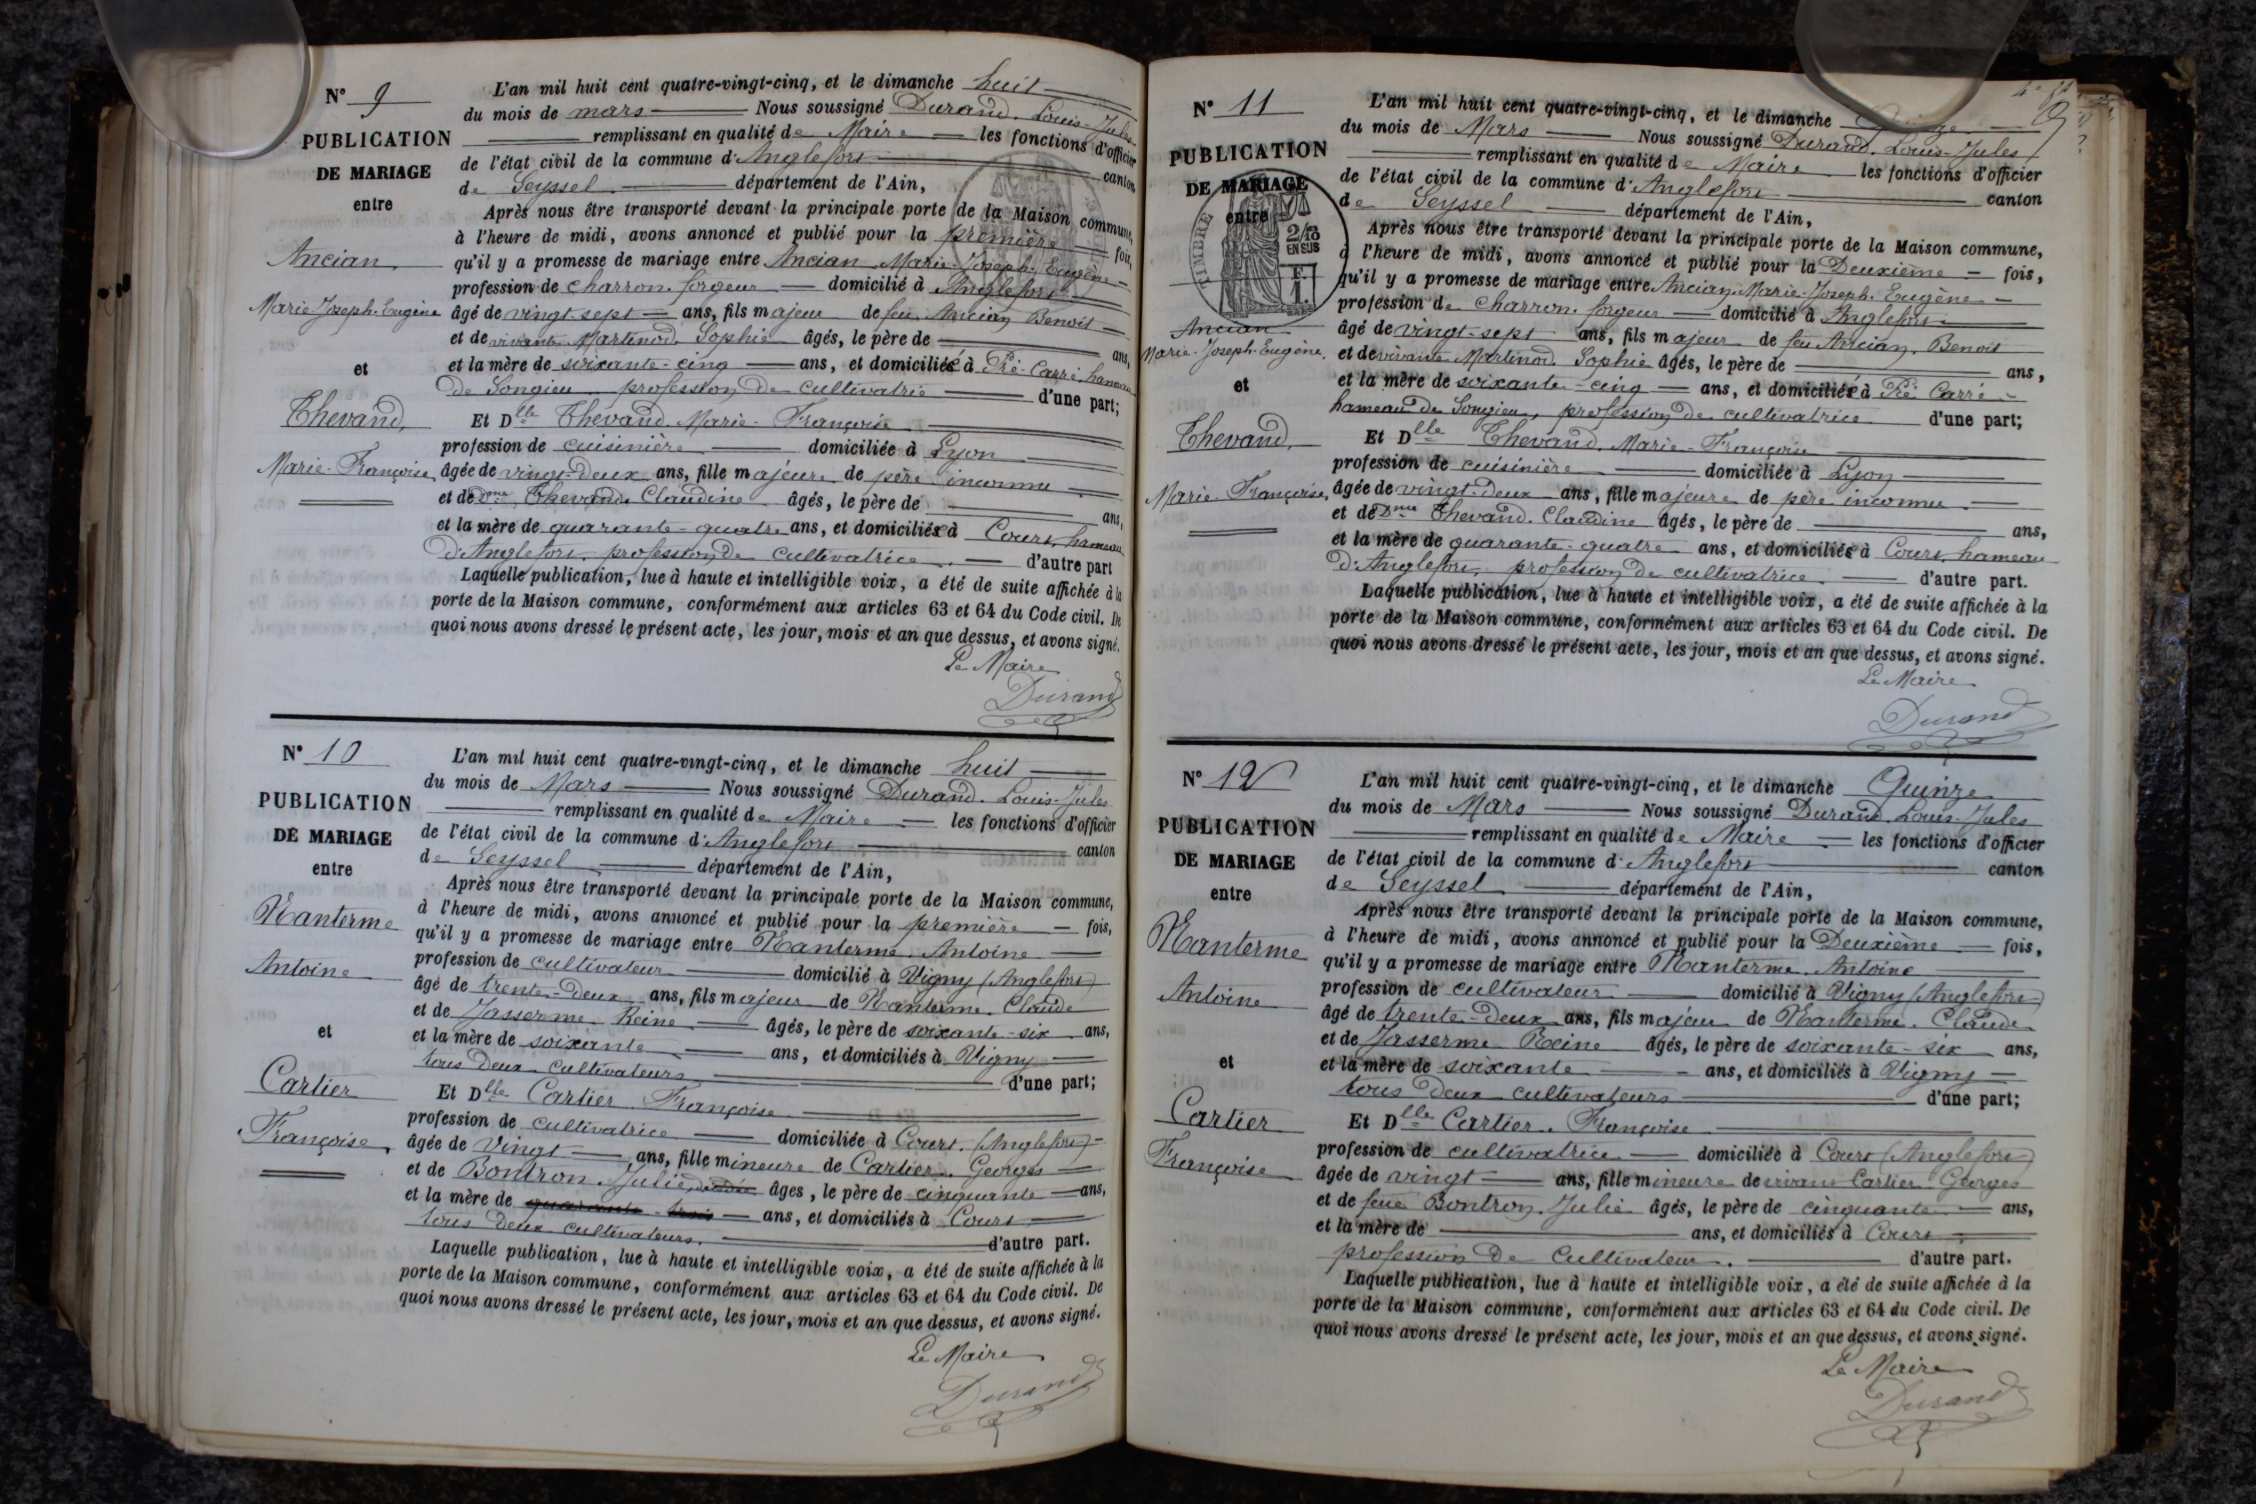 N° 9
PUBLICATION
DE MARIAGE
entre
Ancian
Marie-Joseph-Eugène
et
Thevand,
Marie-Françoise
L'an mil huit cent quatre-vingt-cinq, et le dimanche huit
du mois de mars Nous soussigné Durand, Louis-Jules
remplissant en qualité de Maire les fonctions d'officier
de l'état civil de la commune d'Anglefort canton
de Seyssel département de l'Ain,
Après nous être transporté devant la principale porte de la Maison commune,
à l'heure de midi, avons annoncé et publié pour la première fois,
qu'il y a promesse de mariage entre Ancian, Marie-Joseph-Eugène
profession de charron-forgeur domicilié à Anglefort
âgé de vingt-sept ans, fils majeur de feu Ancian Benoit
et de vivante Martinod, Sophie âgés, le père de ans,
et la mère de soixante-cinq ans, et domiciliée à Pré-Carré, hameau
de Songieu, profession de cultivatrie d'une part;
Et Dlle Thevand, Marie-Françoise
profession de cuisinière domiciliée à Lyon
âgée de vingt-deux ans, fille majeure de père inconnu
et de Dme Thevand, Claudine âgés, le père de ans,
et la mère de quarante-quatre ans, et domiciliés à Court, hameau
d'Anglefort, profession de cultivatrice. d'autre part
Laquelle publication, lue à haute et intelligible voix, a été de suite affichée à la
porte de la Maison commune, conformément aux articles 63 et 64 du Code civil. De
quoi nous avons dressé le présent acte, les jour, mois et an que dessus, et avons signé.
Le Maire
Durand
N° 10
PUBLICATION
DE MARIAGE
entre
Nanterme
Antoine
et
Cartier
Françoise
L'an mil huit cent quatre-vingt-cinq, et le dimanche huit
du mois de Mars Nous soussigné Durand, Louis-Jules
remplissant en qualité de Maire les fonctions d'officier
de l'état civil de la commune d'Anglefort canton
de Seyssel département de l'Ain,
Après nous être transporté devant la principale porte de la Maison commune,
à l'heure de midi, avons annoncé et publié pour la première fois,
qu'il y a promesse de mariage entre Nanterme, Antoine
profession de cultivateur domicilié à Vigny (Anglefort)
âgé de trente-deux ans, fils majeur de Nanterme, Claude
et de Jasserme Reine âgés, le père de soixante-six ans,
et la mère de soixante ans, et domiciliés à Vigny
tous deux cultivateurs d'une part;
Et Dlle Cartier Françoise
profession de cultivatrice domiciliée à Court, (Anglefort)
âgée de Vingt ans, fille mineure de Cartier, Georges
et de Bontron Julie, décédée âgés, le père de cinquante ans,
et la mère de quarante-trois ans, et domiciliés à Court
tous deux cultivateurs. d'autre part.
Laquelle publication, lue à haute et intelligible voix, a été de suite affichée à la
porte de la Maison commune, conformément aux articles 63 et 64 du Code civil. De
quoi nous avons dressé le présent acte, les jour, mois et an que dessus, et avons signé.
Le Maire
Durand
N° 11
PUBLICATION
DE MARIAGE
entre
TIMBRE
2/10
EN SUS
F.
1.
Ancian
Marie-Joseph-Eugène.
et
Thevand,
Marie-Françoise,
L'an mil huit cent quatre-vingt-cinq, et le dimanche Quinze
du mois de Mars Nous soussigné Durand, Louis-Jules
remplissant en qualité de Maire les fonctions d'officier
de l'état civil de la commune d'Anglefort canton
de Seyssel département de l'Ain,
Après nous être transporté devant la principale porte de la Maison commune,
à l'heure de midi, avons annoncé et publié pour la Deuxième fois,
qu'il y a promesse de mariage entre Ancian, Marie-Joseph-Eugène
profession de charron-forgeur domicilié à Anglefort
âgé de vingt-sept ans, fils majeur de feu Ancian, Benoit
et de vivante Martinod, Sophie âgés, le père de ans,
et la mère de soixante-cinq ans, et domiciliée à Pré Carré
hameau de Songieu, profession de cultivatrice d'une part;
Et Dlle Thevand, Marie-Françoise
profession de cuisinière domiciliée à Lyon
âgée de vingt-deux ans, fille majeure de père inconnu
et de Dme Thevand, Claudine âgés, le père de ans,
et la mère de quarante-quatre ans, et domiciliés à Court, hameau
d'Anglefort, profession de cultivatrice. d'autre part.
Laquelle publication, lue à haute et intelligible voix, a été de suite affichée à la
porte de la Maison commune, conformément aux articles 63 et 64 du Code civil. De
quoi nous avons dressé le présent acte, les jour, mois et an que dessus, et avons signé.
Le Maire
Durand
N° 12
PUBLICATION
DE MARIAGE
entre
Nanterme
Antoine
et
Cartier
Françoise
L'an mil huit cent quatre-vingt-cinq, et le dimanche Quinze
du mois de Mars Nous soussigné Durand, Louis-Jules
remplissant en qualité de Maire les fonctions d'officier
de l'état civil de la commune d'Anglefort canton
de Seyssel département de l'Ain,
Après nous être transporté devant la principale porte de la Maison commune,
à l'heure de midi, avons annoncé et publié pour la Deuxième fois,
qu'il y a promesse de mariage entre Nanterme, Antoine
profession de cultivateur domicilié à Vigny (Anglefort)
âgé de trente-deux ans, fils majeur de Nanterme, Claude
et de Jasserme Reine âgés, le père de soixante-six ans,
et la mère de soixante ans, et domiciliés à Vigny
tous deux cultivateurs d'une part;
Et Dlle Cartier, Françoise
profession de cultivatrice domiciliée à Court (Anglefort)
âgée de vingt ans, fille mineure de vivant Cartier Georges
et de feue Bontron, Julie âgés, le père de cinquante ans,
et la mère de ans, et domiciliés à Court
profession de cultivateur. d'autre part.
Laquelle publication, lue à haute et intelligible voix, a été de suite affichée à la
porte de la Maison commune, conformément aux articles 63 et 64 du Code civil. De
quoi nous avons dressé le présent acte, les jour, mois et an que dessus, et avons signé.
Le Maire
Durand